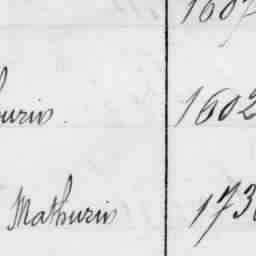 1607
urin. 1602
Mathurin 173